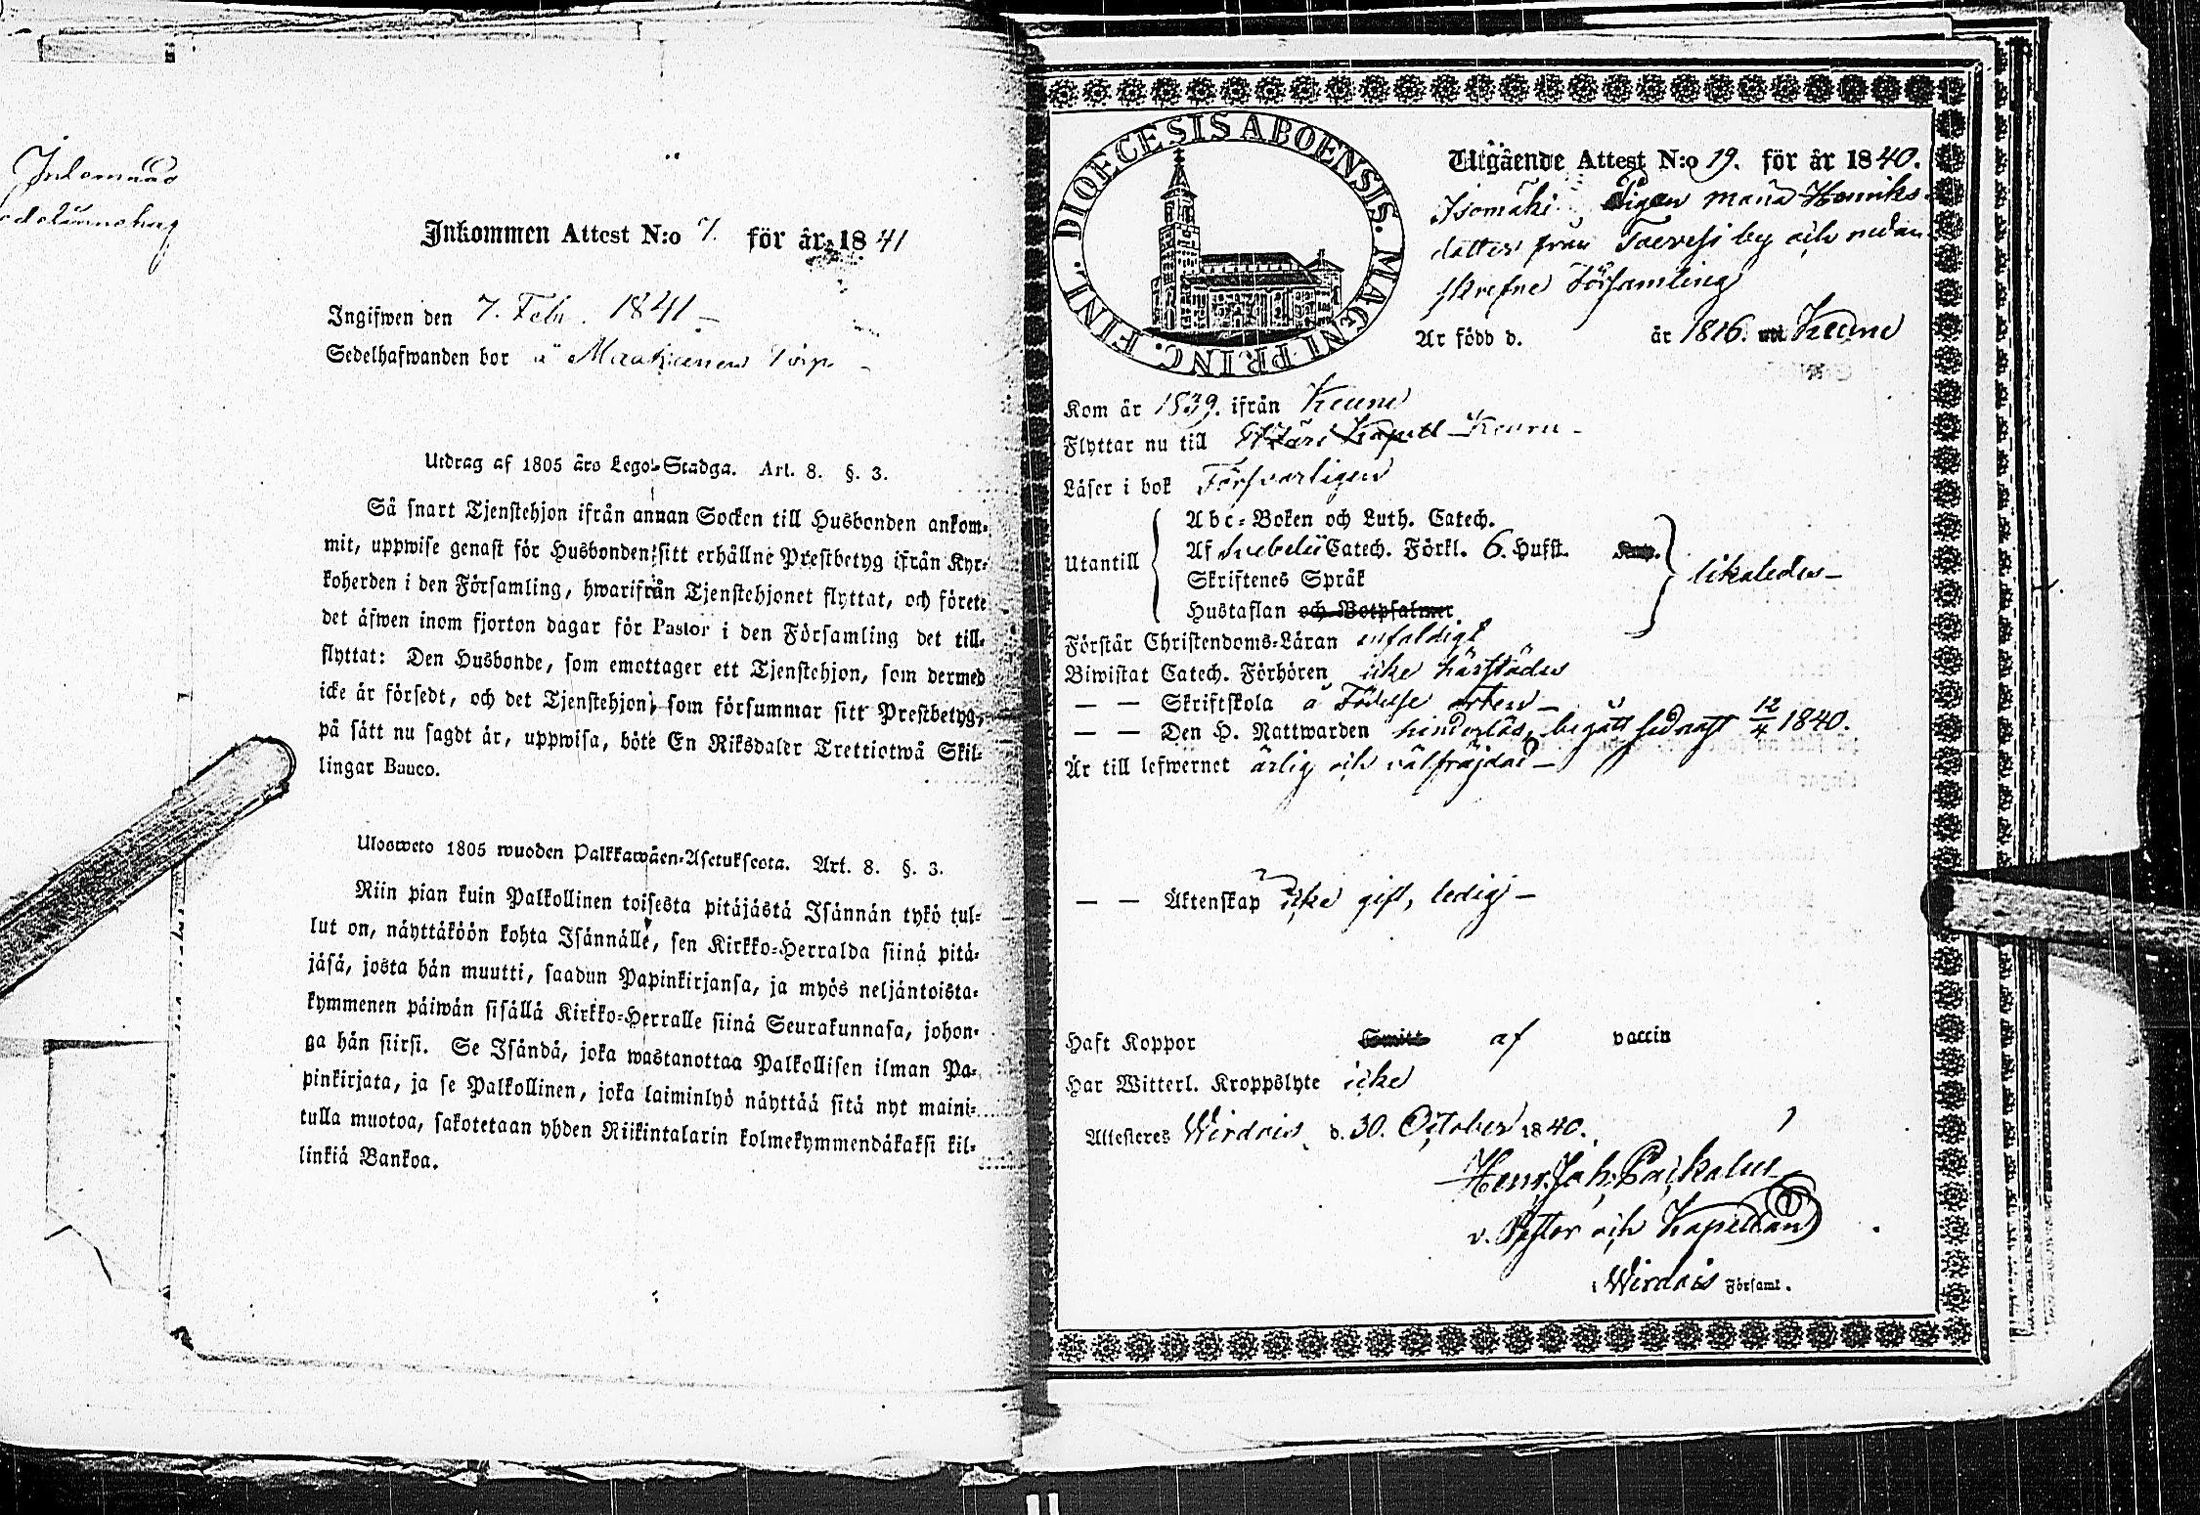 Inkommen Attest N:o 7. för år 1841
Ingifwen den 7. Febr. 1841 –
Sedelhafwanden bor å Torp –
Utdrag af 1805 års Lego-Stadga. Art. 8. §. 3.
Så snart Tjenstehjon ifrån annan Socken till Husbonden ankom-
mit, uppwise genast för Husbonden sitt erhållne Prestbetyg ifrån Kyr-
koherden i den Församling, hwarifrån Tjenstehjonet flyttat, och förete
det äfwen inom fjorton dagar för Pastor i den Församling det till-
flyttat: Den Husbonde, som emottager ett Tjenstehjon, som dermed
icke är försedt, och det Tjenstehjon, som försummar sitt Prestbetyg,
på sätt nu sagdt är, uppwisa, böte En Riksdaler Trettiotwå Skil-
lingar Banco.
Ulosweto 1805 wuoden Palkkawäen-Asetuksesta. Art. 8. §. 3.
Niin pian kuin Palkollinen toisesta pitäjästä Isännän tykö tul-
lut on, näyttäköön kohta Isännälle, sen Kirkko-Herralda siinä pitä-
jäsä, josta hän muutti, saadun Papinkirjansa, ja myös neljäntoista-
kymmenen päiwän sisällä Kirkko-Herralle siinä Seurakunnasa, johon-
ga hän siirsi. Se Isändä, joka wastanottaa Palkollisen ilman Pa-
pinkirjata, ja se Palkollinen, joka laiminlyö näyttää sitä nyt maini-
tulla muotoa, sakotetaan yhden Riikintalarin kolmekymmendäkaksi kil-
linkiä Bankoa.
DIOECESIS ABOENSIS. MAGNI PRINC. FINL.
Utgående Attest N:o 19. för år 1840.
Isomäki Pigan Maria Henriks-
dotter från by och nedan-
skrefne Församling
Är född d. år 1816. uti Keuru
Kom år 1839. ifrån Keuru
Flyttar nu till Kapell Keuru –
Läser i bok Försvarligen
Abc-Boken och Luth. Catech.
Utantill Af Svebelii Catech. Förkl. 6. Hufst. likaledes –
Skriftenes Språk
Hustaflan och Botpsalmer
Förstår Christendoms-Läran enfaldigt
Biwistat Catech. Förhören icke härstädes
– – Skriftskola å Födelse orten –
– – Den H. Nattwarden hinderlös, begått sednast 12/4 1840.
Är till lefwernet ärlig och välfräjdad –
– – Äktenskap icke gift, ledig –
Haft Koppor af vaccin
Har Witterl. Kroppslyte icke
Attesteres Wirdois d. 30. October 1840.
Henr. Joh.
v. Pastor och Kapellan
i Wirdois Församl.